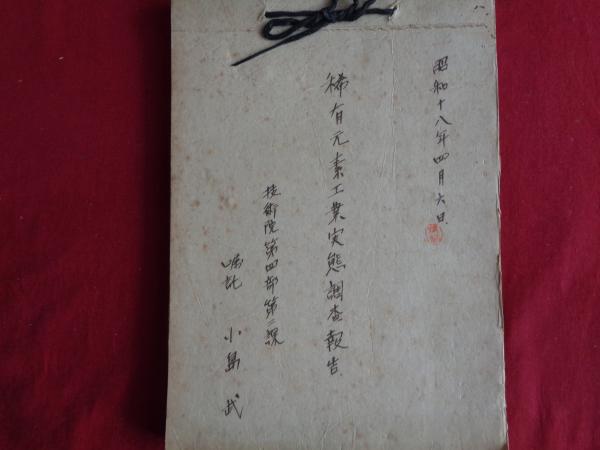 昭和十八年四月六日
稀有元素工業実態調査報告
技術院第四部第二課
嘱託 小島武